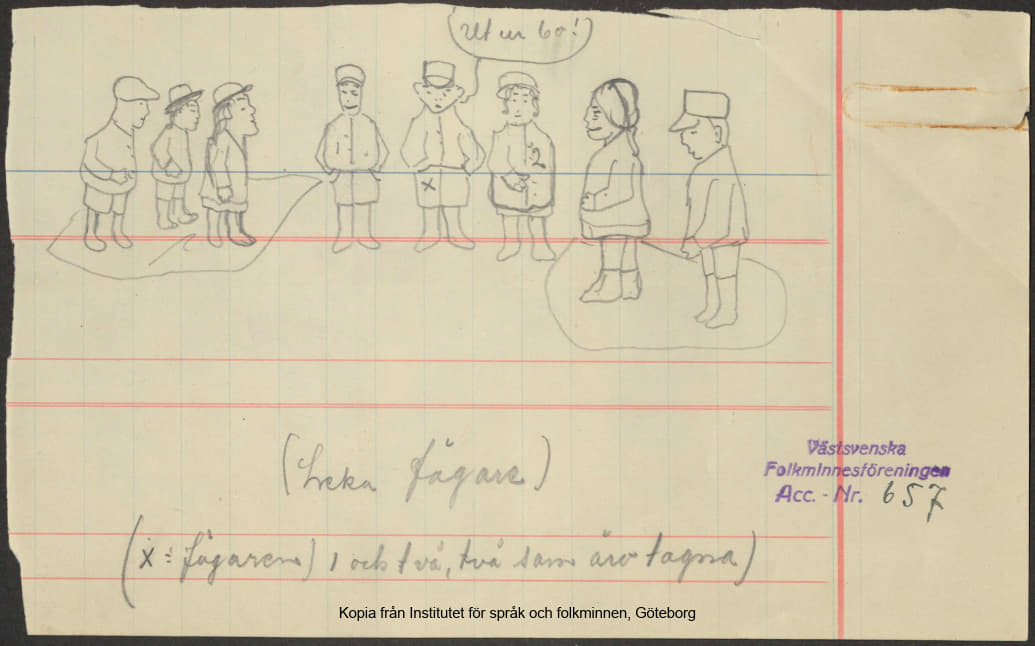 Ut ur bo!
x
2
(Leka fågare)
(x = fågaren) 1 och två, två som äro tagna)
Västsvenska
Folkminnesföreningen
Acc. - Nr. 657
Kopia från Institutet för språk och folkminnen, Göteborg